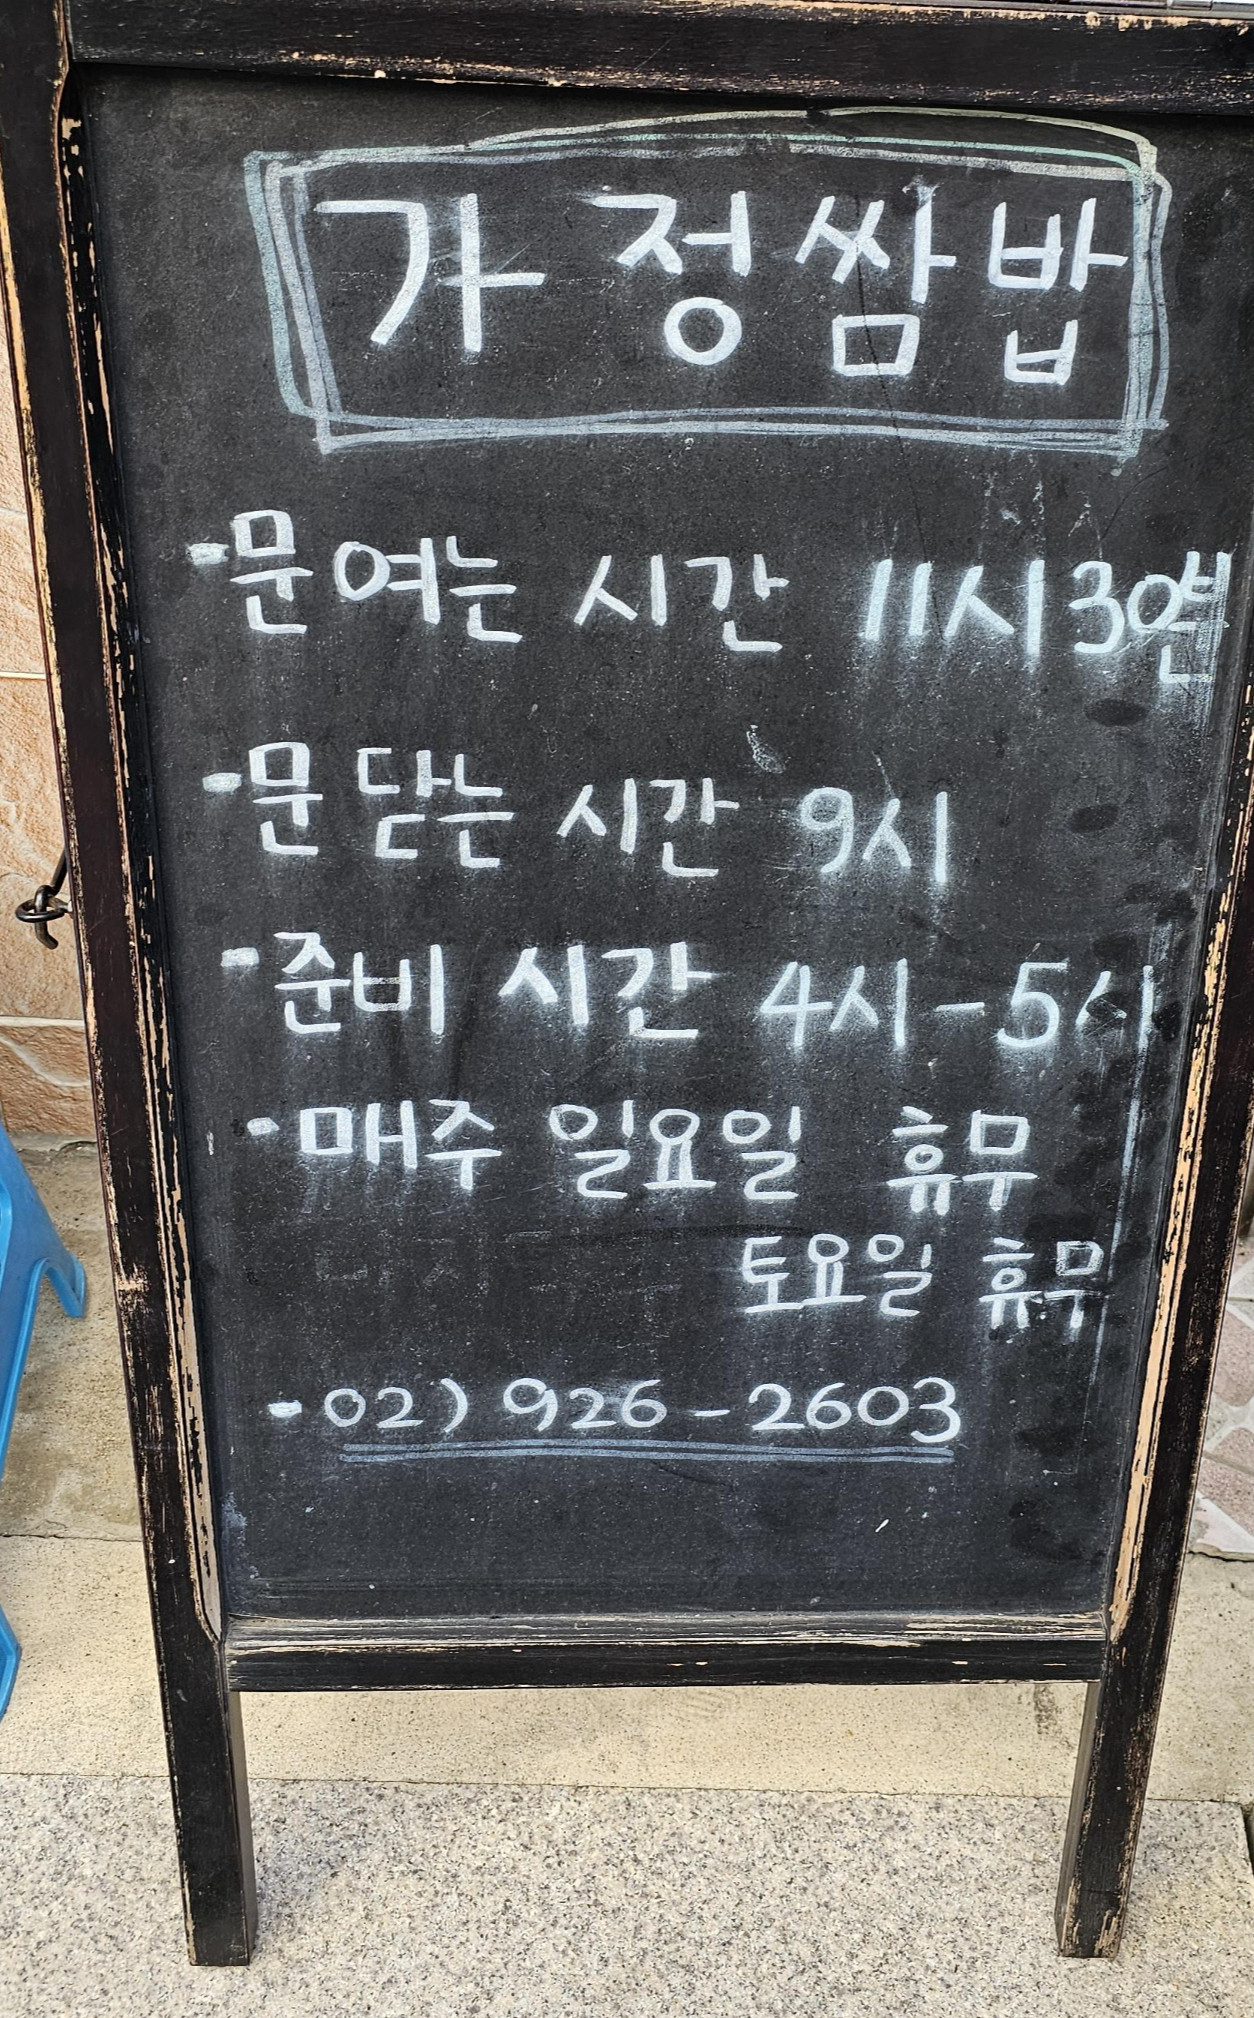 가정쌈밥
-문여는 시간 11시30분
-문닫는 시간 9시
-준비 시간 4시-5시
-매주 일요일 휴무
토요일 휴무
-02) 926-2603